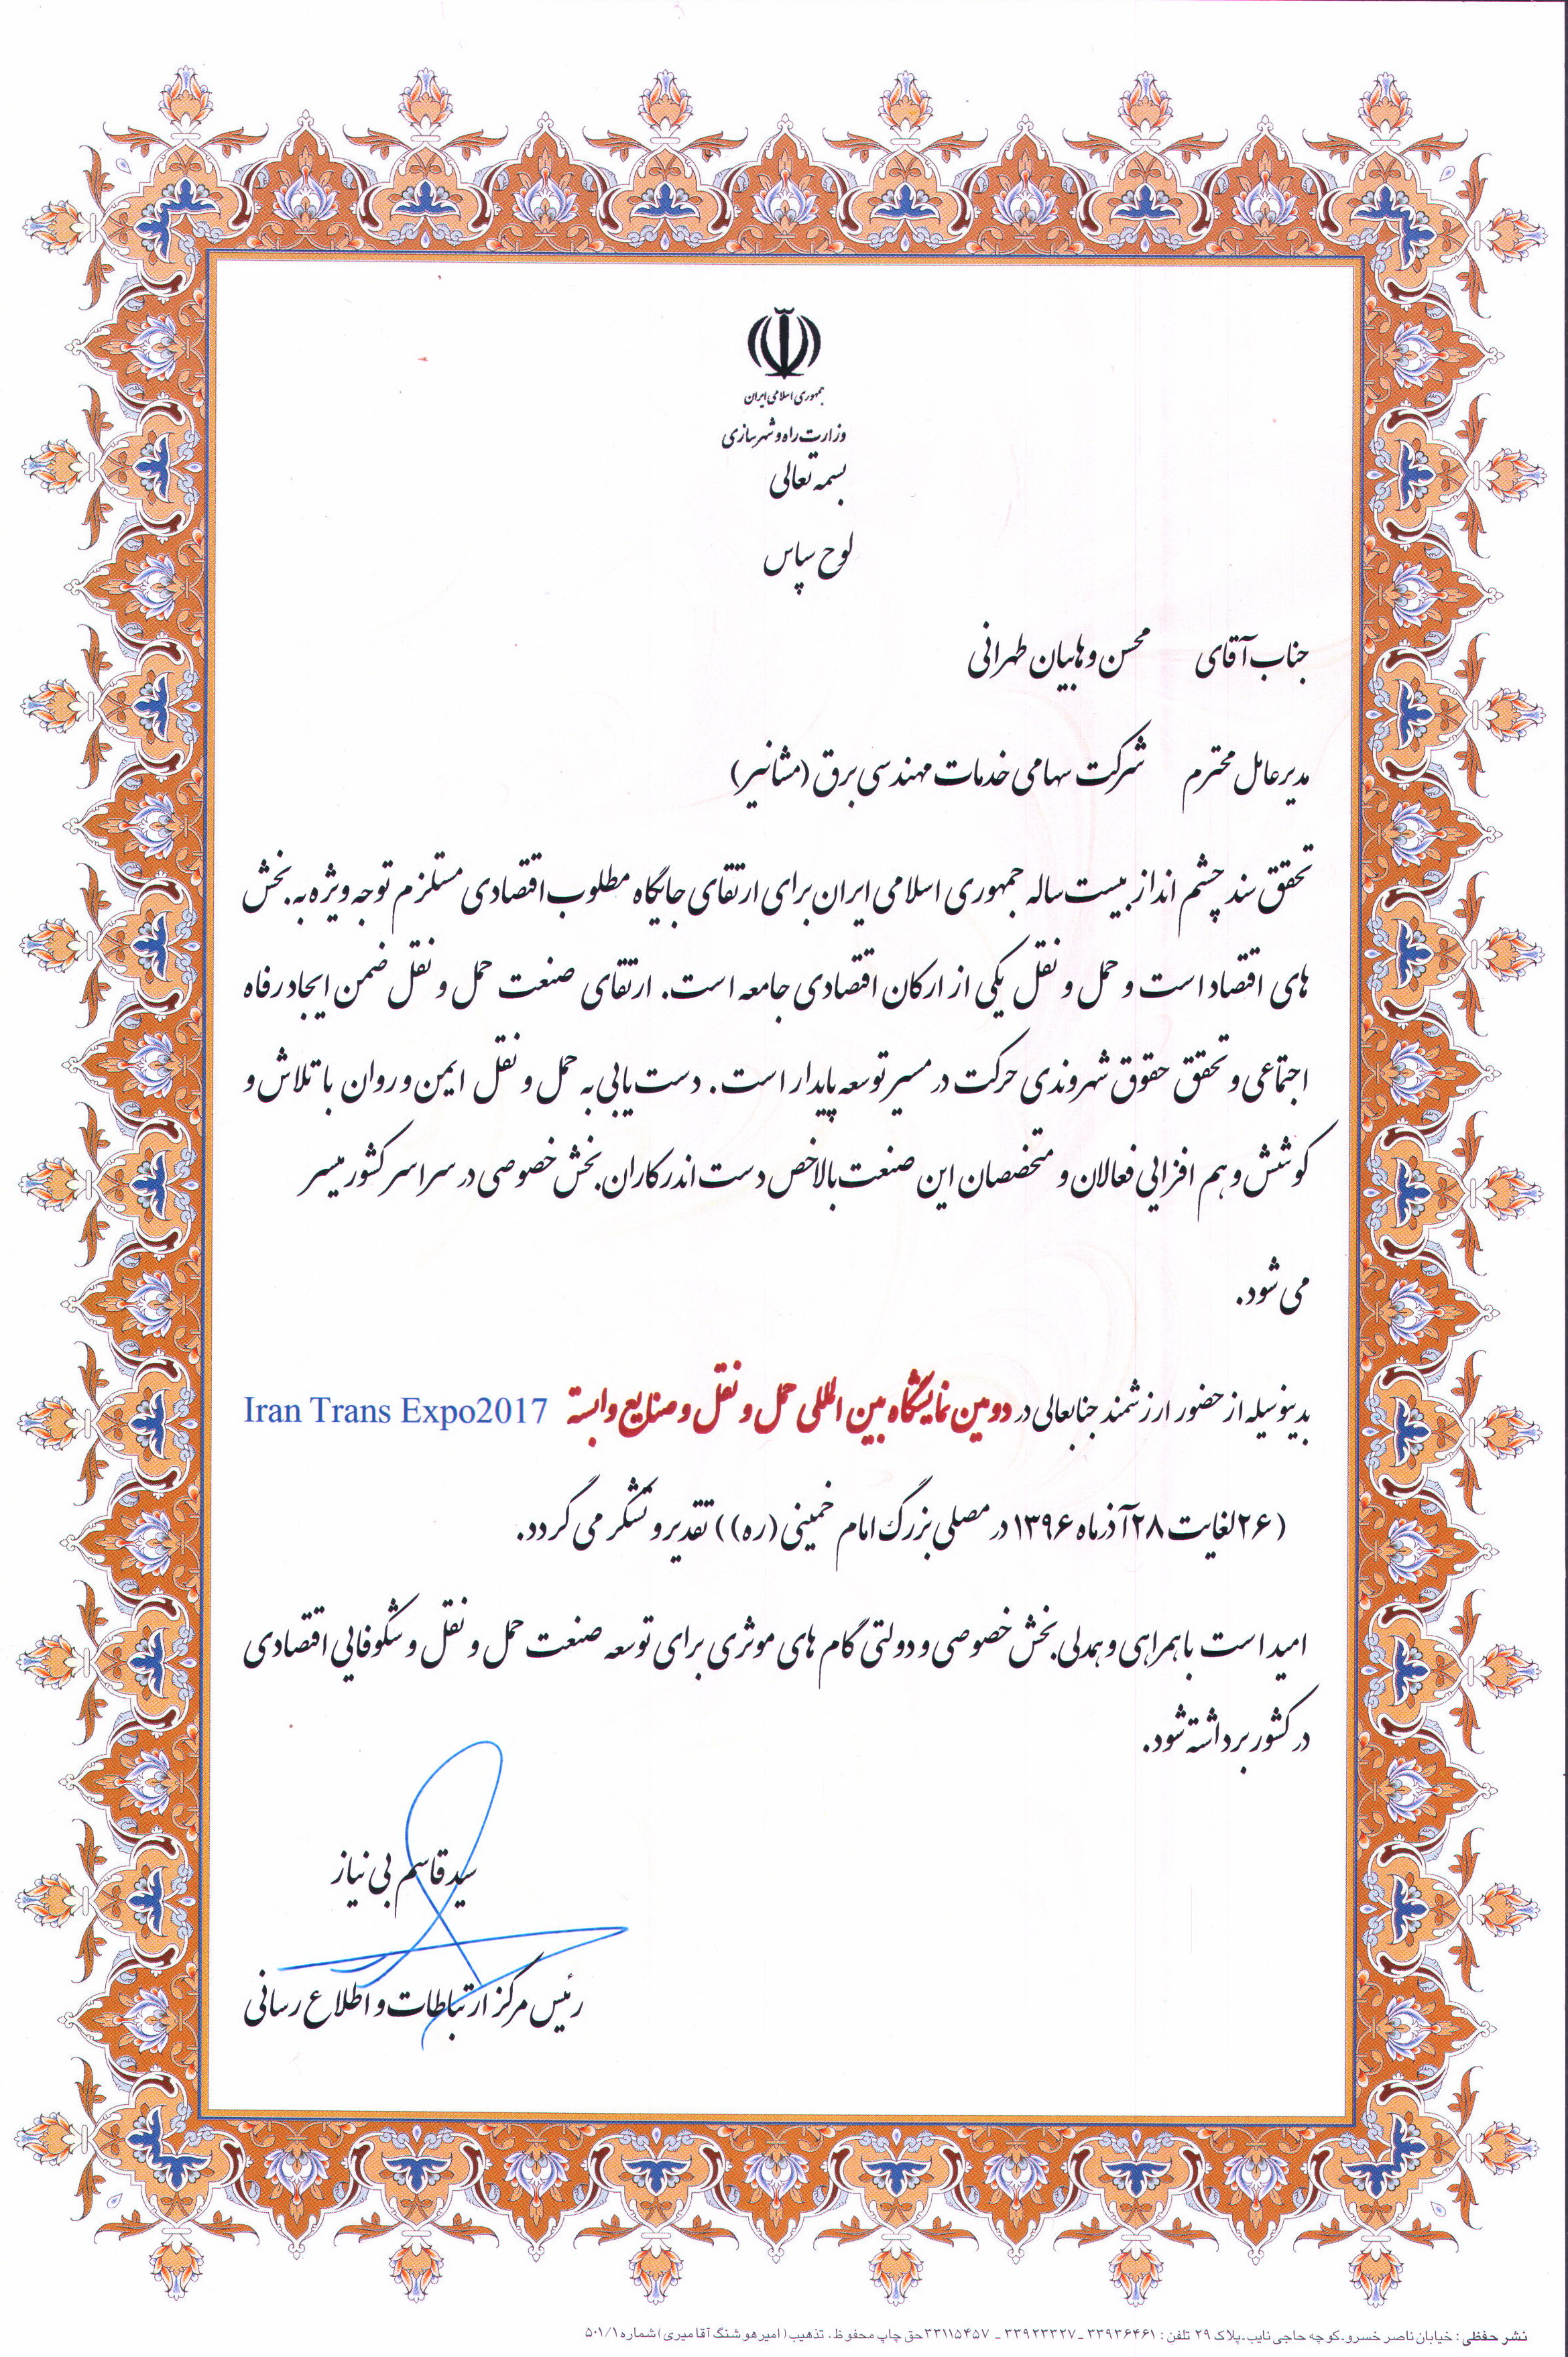 جمهوری اسلامی ایران
وزارت راه و شهرسازی
بسمه تعالی
لوح سپاس
جناب آقای محسن وهابیان طهرانی
مدیرعامل محترم شرکت سهامی خدمات مهندسی برق (مشانیر)
تحقق سند چشم انداز بیست ساله جمهوری اسلامی ایران برای ارتقای جایگاه مطلوب اقتصادی مستلزم توجه ویژه به بخش
های اقتصاد است و حمل و نقل یکی از ارکان اقتصادی جامعه است. ارتقای صنعت حمل و نقل ضمن ایجاد رفاه
اجتماعی و تحقق حقوق شهروندی حرکت در مسیر توسعه پایدار است. دست یابی به حمل و نقل ایمن و روان با تلاش و
کوشش و هم افزایی فعالان و متخصصان این صنعت بالاخص دست اندرکاران بخش خصوصی در سراسر کشور میسر
می شود.
بدینوسیله از حضور ارزشمند جنابعالی در دومین نمایشگاه بین المللی حمل و نقل و صنایع وابسته Iran Trans Expo2017
(۲۶ لغایت ۲۸ آذرماه ۱۳۹۶ در مصلی بزرگ امام خمینی (ره)) تقدیر و تشکر می گردد.
امید است با همراهی و همدلی بخش خصوصی و دولتی گام های موثری برای توسعه صنعت حمل و نقل و شکوفایی اقتصادی
در کشور برداشته شود.
سید قاسم بی نیاز
رئیس مرکز ارتباطات و اطلاع رسانی
نشر حفظی : خیابان ناصر خسرو.کوچه حاجی نایب.پلاک ۲۹ تلفن : ۳۳۹۳۶۴۶۱ ـ ۳۳۹۲۳۳۲۷ ـ ۳۳۱۱۵۴۵۷ حق چاپ محفوظ. تذهیب (امیرهوشنگ آقامیری) شماره ۵۰۱/۱